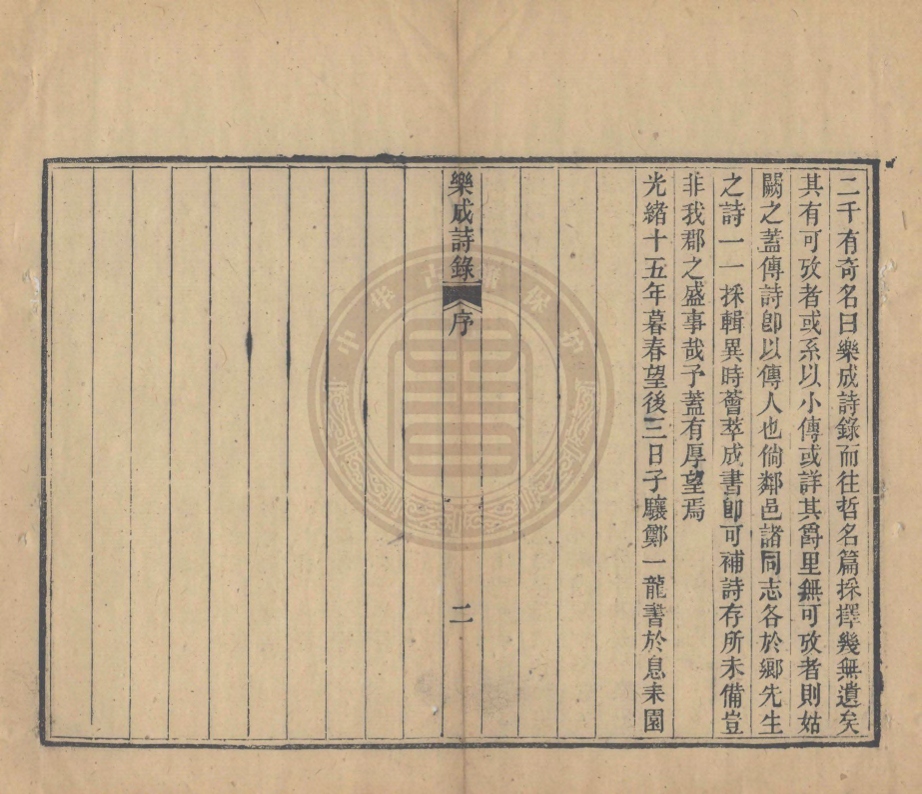 二千有奇名曰樂成詩錄而往哲名篇採擇幾無遺矣
其有可攷者或系以小傳或詳其爵里無可攷者則姑
闕之蓋傳詩卽以傳人也倘鄰邑諸同志各於鄉先生
之詩一一採輯異時薈萃成書卽可補詩存所未備豈
非我郡之盛事哉予蓋有厚望焉
光緒十五年暮春望後三日子驤鄭一龍書於息耒園
樂成詩錄 序 二